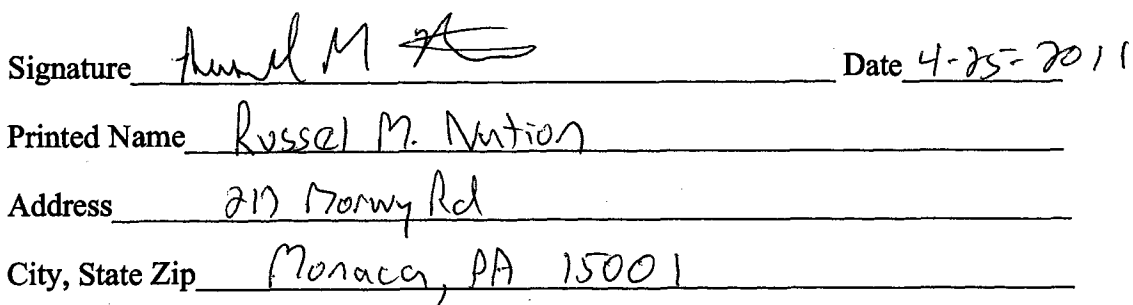 Signature M Date 4-25-2011
Printed Name Russel M. Nution
Address 217 Rd
City, State Zip Monaca, PA 15001